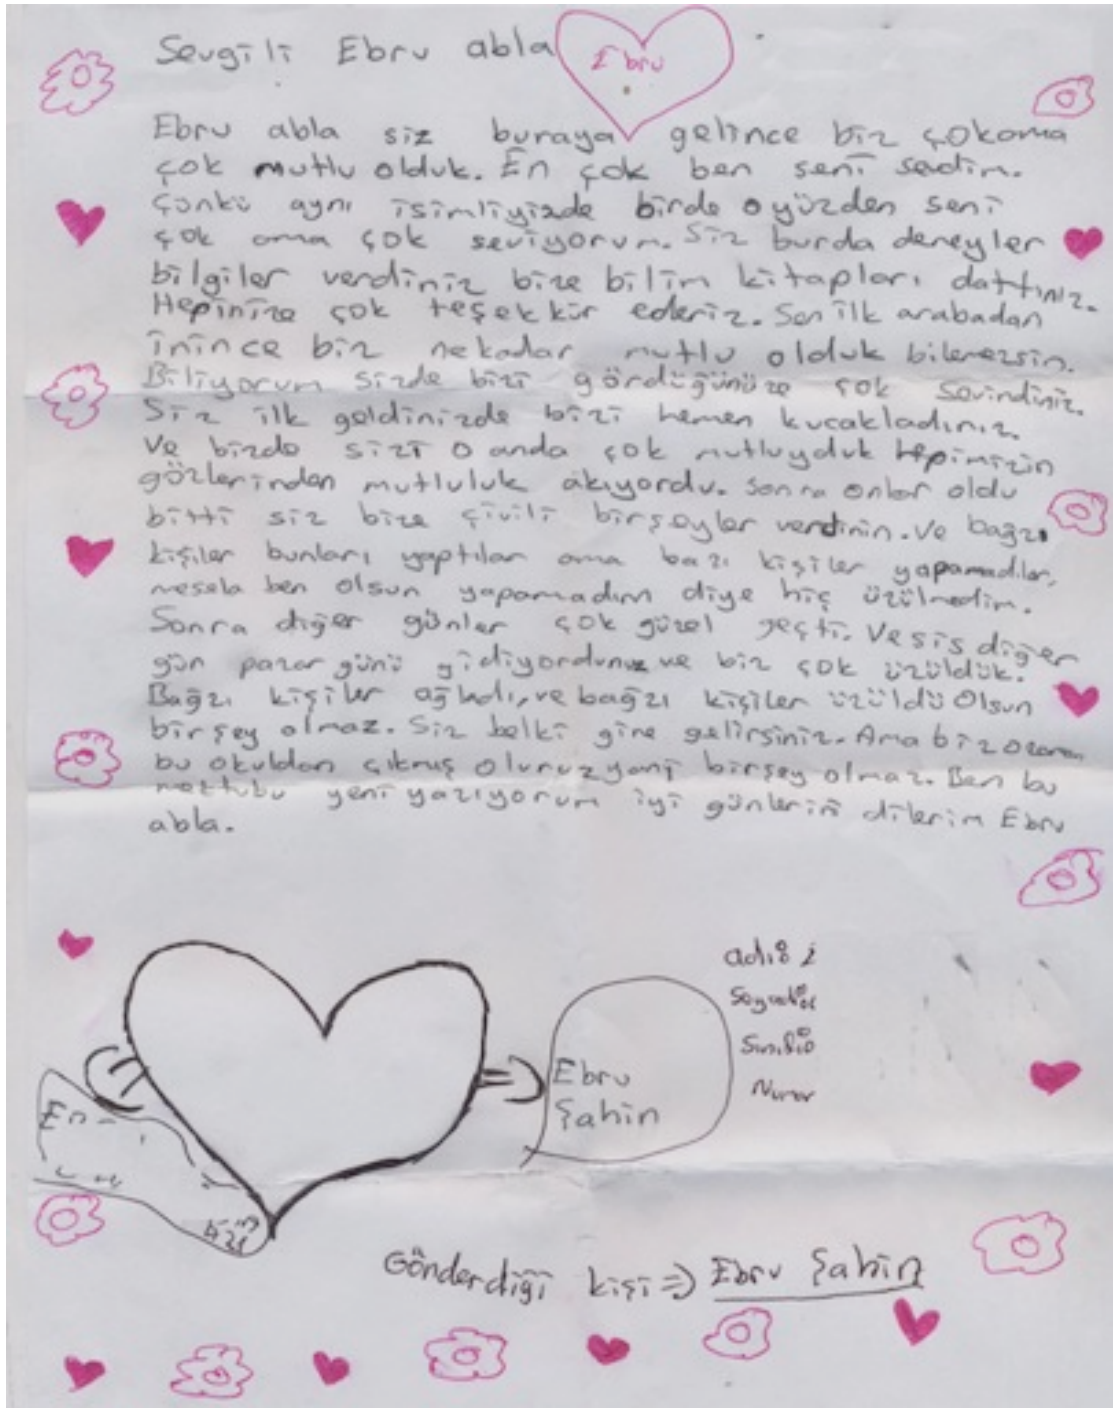 Sevgili Ebru abla
Ebru
Ebru abla siz buraya gelince biz çokama
çok mutlu olduk. En çok ben seni sevdim.
Çünkü aynı isimliyizde birde o yüzden seni
çok ama çok seviyorum. Siz burda deneyler
bilgiler verdiniz bize bilim kitapları dattınız.
Hepinize çok teşekkür ederiz. Sen ilk arabadan
inince biz nekadar mutlu olduk bilemezsin.
Biliyorum sizde bizi gördüğünüze çok sevindiniz.
Siz ilk geldinizde bizi hemen kucakladınız.
Ve bizde sizi o anda çok mutluyduk hepimizin
gözlerinden mutluluk akıyordu. Sonra onlar oldu
bitti siz bize çivili birşeyler verdinin. Ve bağzı
kişiler bunları yaptılar ama bazı kişiler yapamadılar,
mesela ben olsun yapamadım diye hiç üzülmedim.
Sonra diğer günler çok güzel geçti. Ve sis diğer
gün pazar günü gidiyordunuz ve biz çok üzüldük.
Bağzı kişiler ağladı, ve bağzı kişiler üzüldü Olsun
birşey olmaz. Siz belki gine gelirsiniz. Ama biz ozaman
bu okuldan çıkmış oluruz yani birşey olmaz. Ben bu
mektubu yeni yazıyorum iyi günlerin dilerim Ebru
abla.
adı:
Soyadı:
Sınıfı:
Ebru
Şahin
En
bizi
Gönderdiği kişi => Ebru Şahin